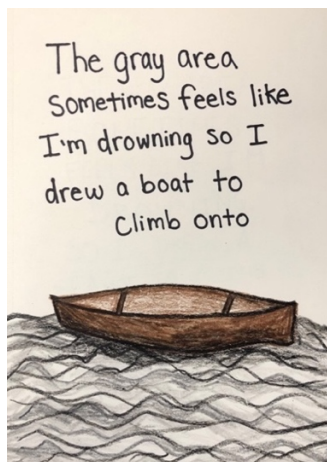 The gray area
Sometimes feels like
I'm drowning so I
drew a boat to
Climb onto